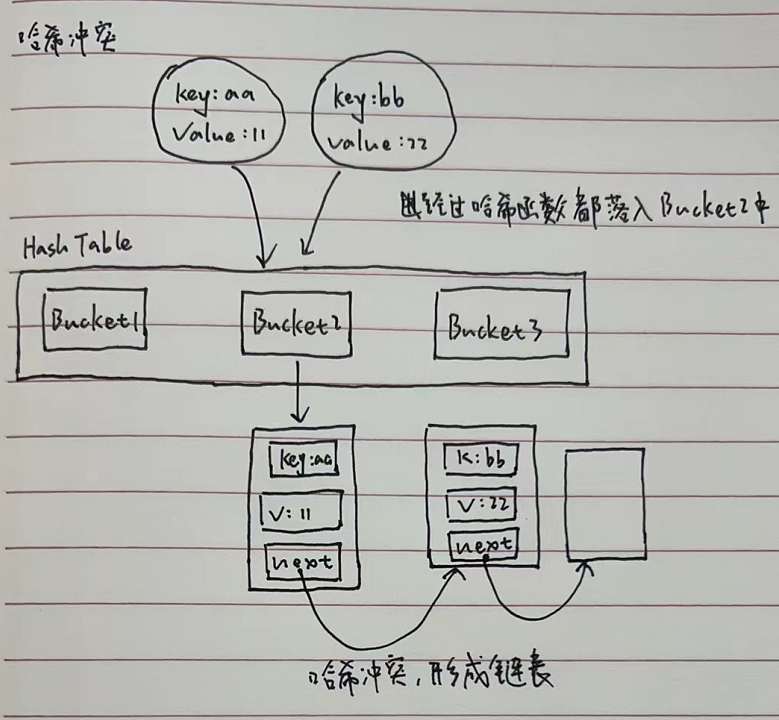 哈希冲突
key:aa
value:11
key:bb
value:22
经过哈希函数都落入Bucket2中
Hash Table
Bucket1
Bucket2
Bucket3
key:aa
V:11
next
k:bb
V:22
next
哈希冲突,形成链表